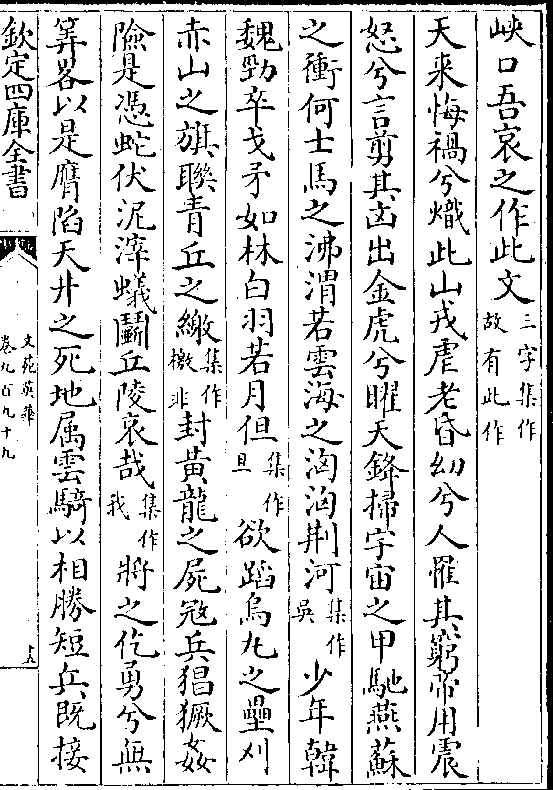 峽口吾哀之作此文三字集作故有此作
天来悔禍兮熾此山戎虐老昏幼兮人罹其窮帝用震
怒兮言剪其凶出金虎兮曜天鋒掃宇宙之甲馳燕蘇
之衝何士馬之沸渭若雲海之洶洶荆河集作吳少年韓
魏勁卒戈矛如林白羽若月但集作旦欲蹈烏丸之壘刈
赤山之旗聮青丘之繳集作檄非封黃龍之屍冦兵猖獗姦
險是馮蛇伏泥滓蟻鬬丘陵哀哉集作我將之仡勇兮無
筭畧以是膺陷天井之死地属雲騎以相勝短兵既接
欽定四庫全書
文苑英華
卷九百九十九
十五